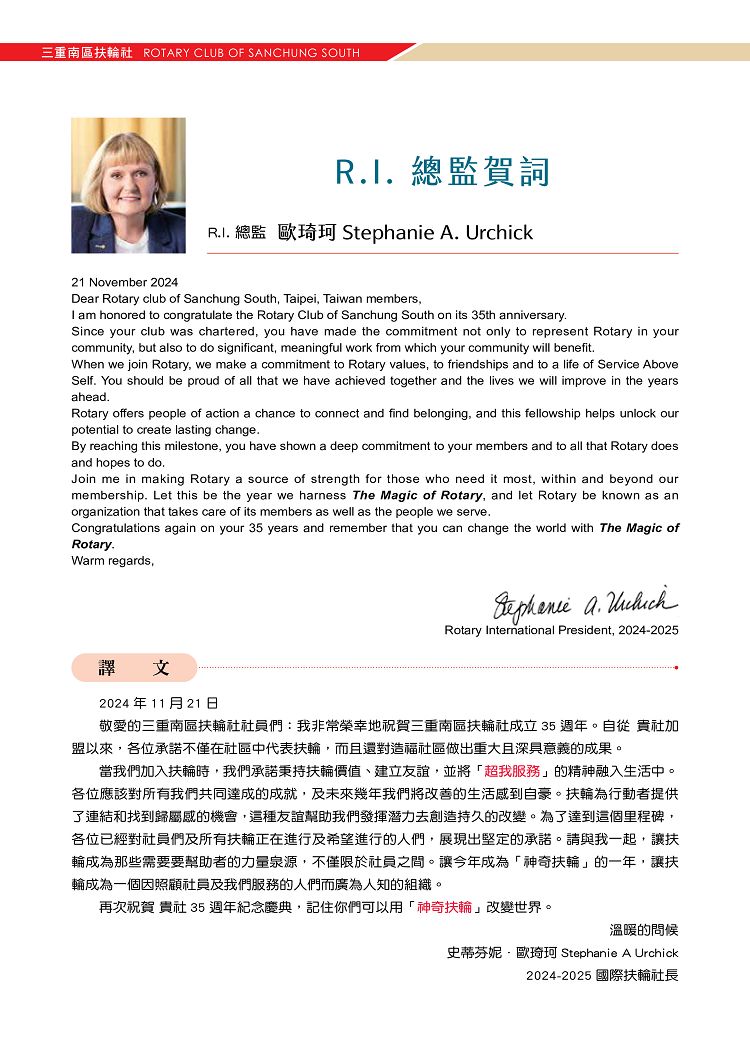 三重南區扶輪社 ROTARY CLUB OF SANCHUNG SOUTH
R.I. 總監賀詞
R.I. 總監 歐琦珂 Stephanie A. Urchick
21 November 2024
Dear Rotary club of Sanchung South, Taipei, Taiwan members,
I am honored to congratulate the Rotary Club of Sanchung South on its 35th anniversary.
Since your club was chartered, you have made the commitment not only to represent Rotary in your
community, but also to do significant, meaningful work from which your community will benefit.
When we join Rotary, we make a commitment to Rotary values, to friendships and to a life of Service Above
Self. You should be proud of all that we have achieved together and the lives we will improve in the years
ahead.
Rotary offers people of action a chance to connect and find belonging, and this fellowship helps unlock our
potential to create lasting change.
By reaching this milestone, you have shown a deep commitment to your members and to all that Rotary does
and hopes to do.
Join me in making Rotary a source of strength for those who need it most, within and beyond our
membership. Let this be the year we harness The Magic of Rotary, and let Rotary be known as an
organization that takes care of its members as well as the people we serve.
Congratulations again on your 35 years and remember that you can change the world with The Magic of
Rotary.
Warm regards,
Stephanie A. Urchick
Rotary International President, 2024-2025
譯 文
2024 年 11 月 21 日
敬愛的三重南區扶輪社社員們：我非常榮幸地祝賀三重南區扶輪社成立 35 週年。自從 貴社加
盟以來，各位承諾不僅在社區中代表扶輪，而且還對造福社區做出重大且深具意義的成果。
當我們加入扶輪時，我們承諾秉持扶輪價值、建立友誼，並將「超我服務」的精神融入生活中。
各位應該對所有我們共同達成的成就，及未來幾年我們將改善的生活感到自豪。扶輪為行動者提供
了連結和找到歸屬感的機會，這種友誼幫助我們發揮潛力去創造持久的改變。為了達到這個里程碑，
各位已經對社員們及所有扶輪正在進行及希望進行的人們，展現出堅定的承諾。請與我一起，讓扶
輪成為那些需要要幫助者的力量泉源，不僅限於社員之間。讓今年成為「神奇扶輪」的一年，讓扶
輪成為一個因照顧社員及我們服務的人們而廣為人知的組織。
再次祝賀 貴社 35 週年紀念慶典，記住你們可以用「神奇扶輪」改變世界。
溫暖的問候
史蒂芬妮．歐琦珂 Stephanie A Urchick
2024-2025 國際扶輪社長